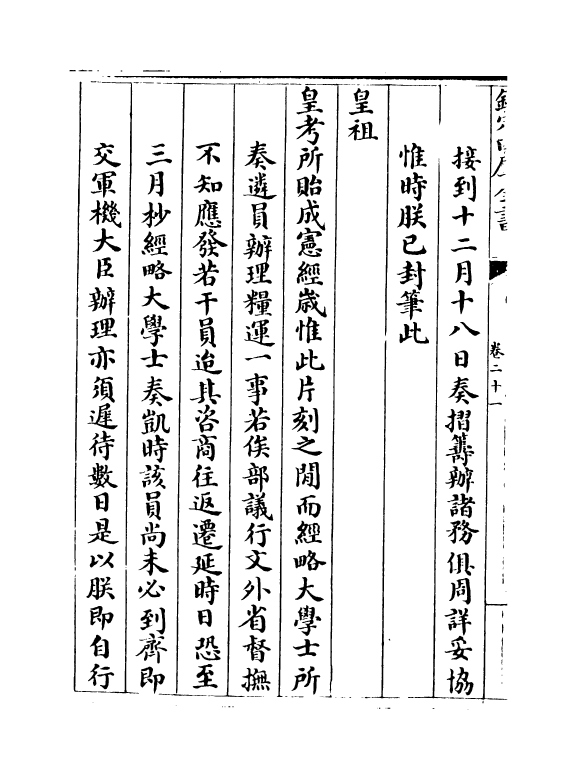 接到十二月十八日奏摺籌辦諸務俱周詳妥協
惟時朕已封筆此
皇祖
皇考所貽成憲經歲惟此片刻之閒而經略大學士所
奏遴員辦理糧運一事若俟部議行文外省督撫
不知應發若干員迨其咨商往返遷延時日恐至
三月杪經略大學士奏凱時該員尚未必到齊即
交軍機大臣辦理亦須遲待數日是以朕即自行
卷二十一